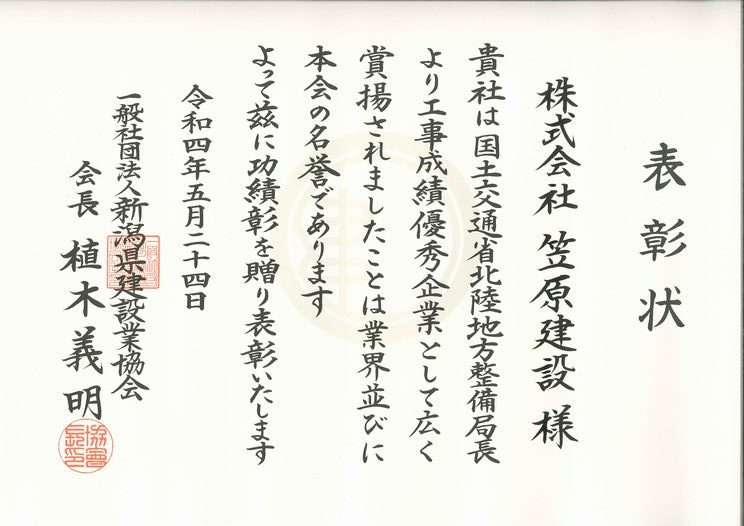 表彰状
株式会社 笠原建設 様
貴社は国土交通省北陸地方整備局長
より工事成績優秀企業として広く
賞揚されましたことは業界並びに
本会の名誉であります
よって茲に功績彰を贈り表彰いたします
令和四年五月二十四日
一般社団法人新潟県建設業協会
会長 植木義明